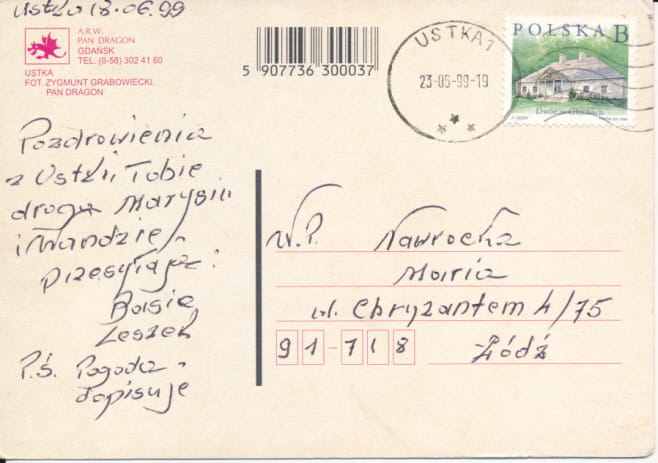 Ustka 18.06.99
A.R.W.
PAN DRAGON
GDAŃSK
TEL. (0-58) 302 41 60
USTKA
FOT. ZYGMUNT GRABOWIECKI,
PAN DRAGON
5 907736 300037
USTKA 1
23-06-99-19
POLSKA B
Dwór w
Pozdrowienia
z Ustki Tobie
droga Marysiu
i Wandzie,
przesyłają:
Basia
Leszek
P.S. Pogoda
dopisuje
W.P. Nawrocka
Maria
ul. Chryzantem 4/75
91-718 Łódź